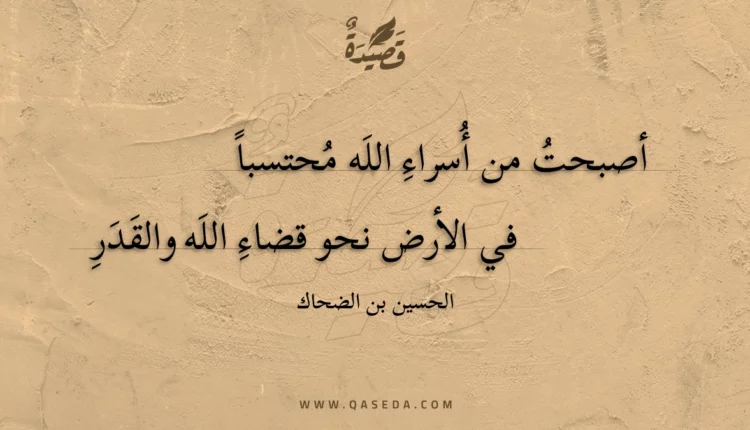 قَصِيدَةٌ
أصبحتُ من أُسراءِ اللَه مُحتسباً
في الأرض نحو قضاءِ اللَه والقَدَرِ
الحسين بن الضحاك
WWW.QASEDA.COM